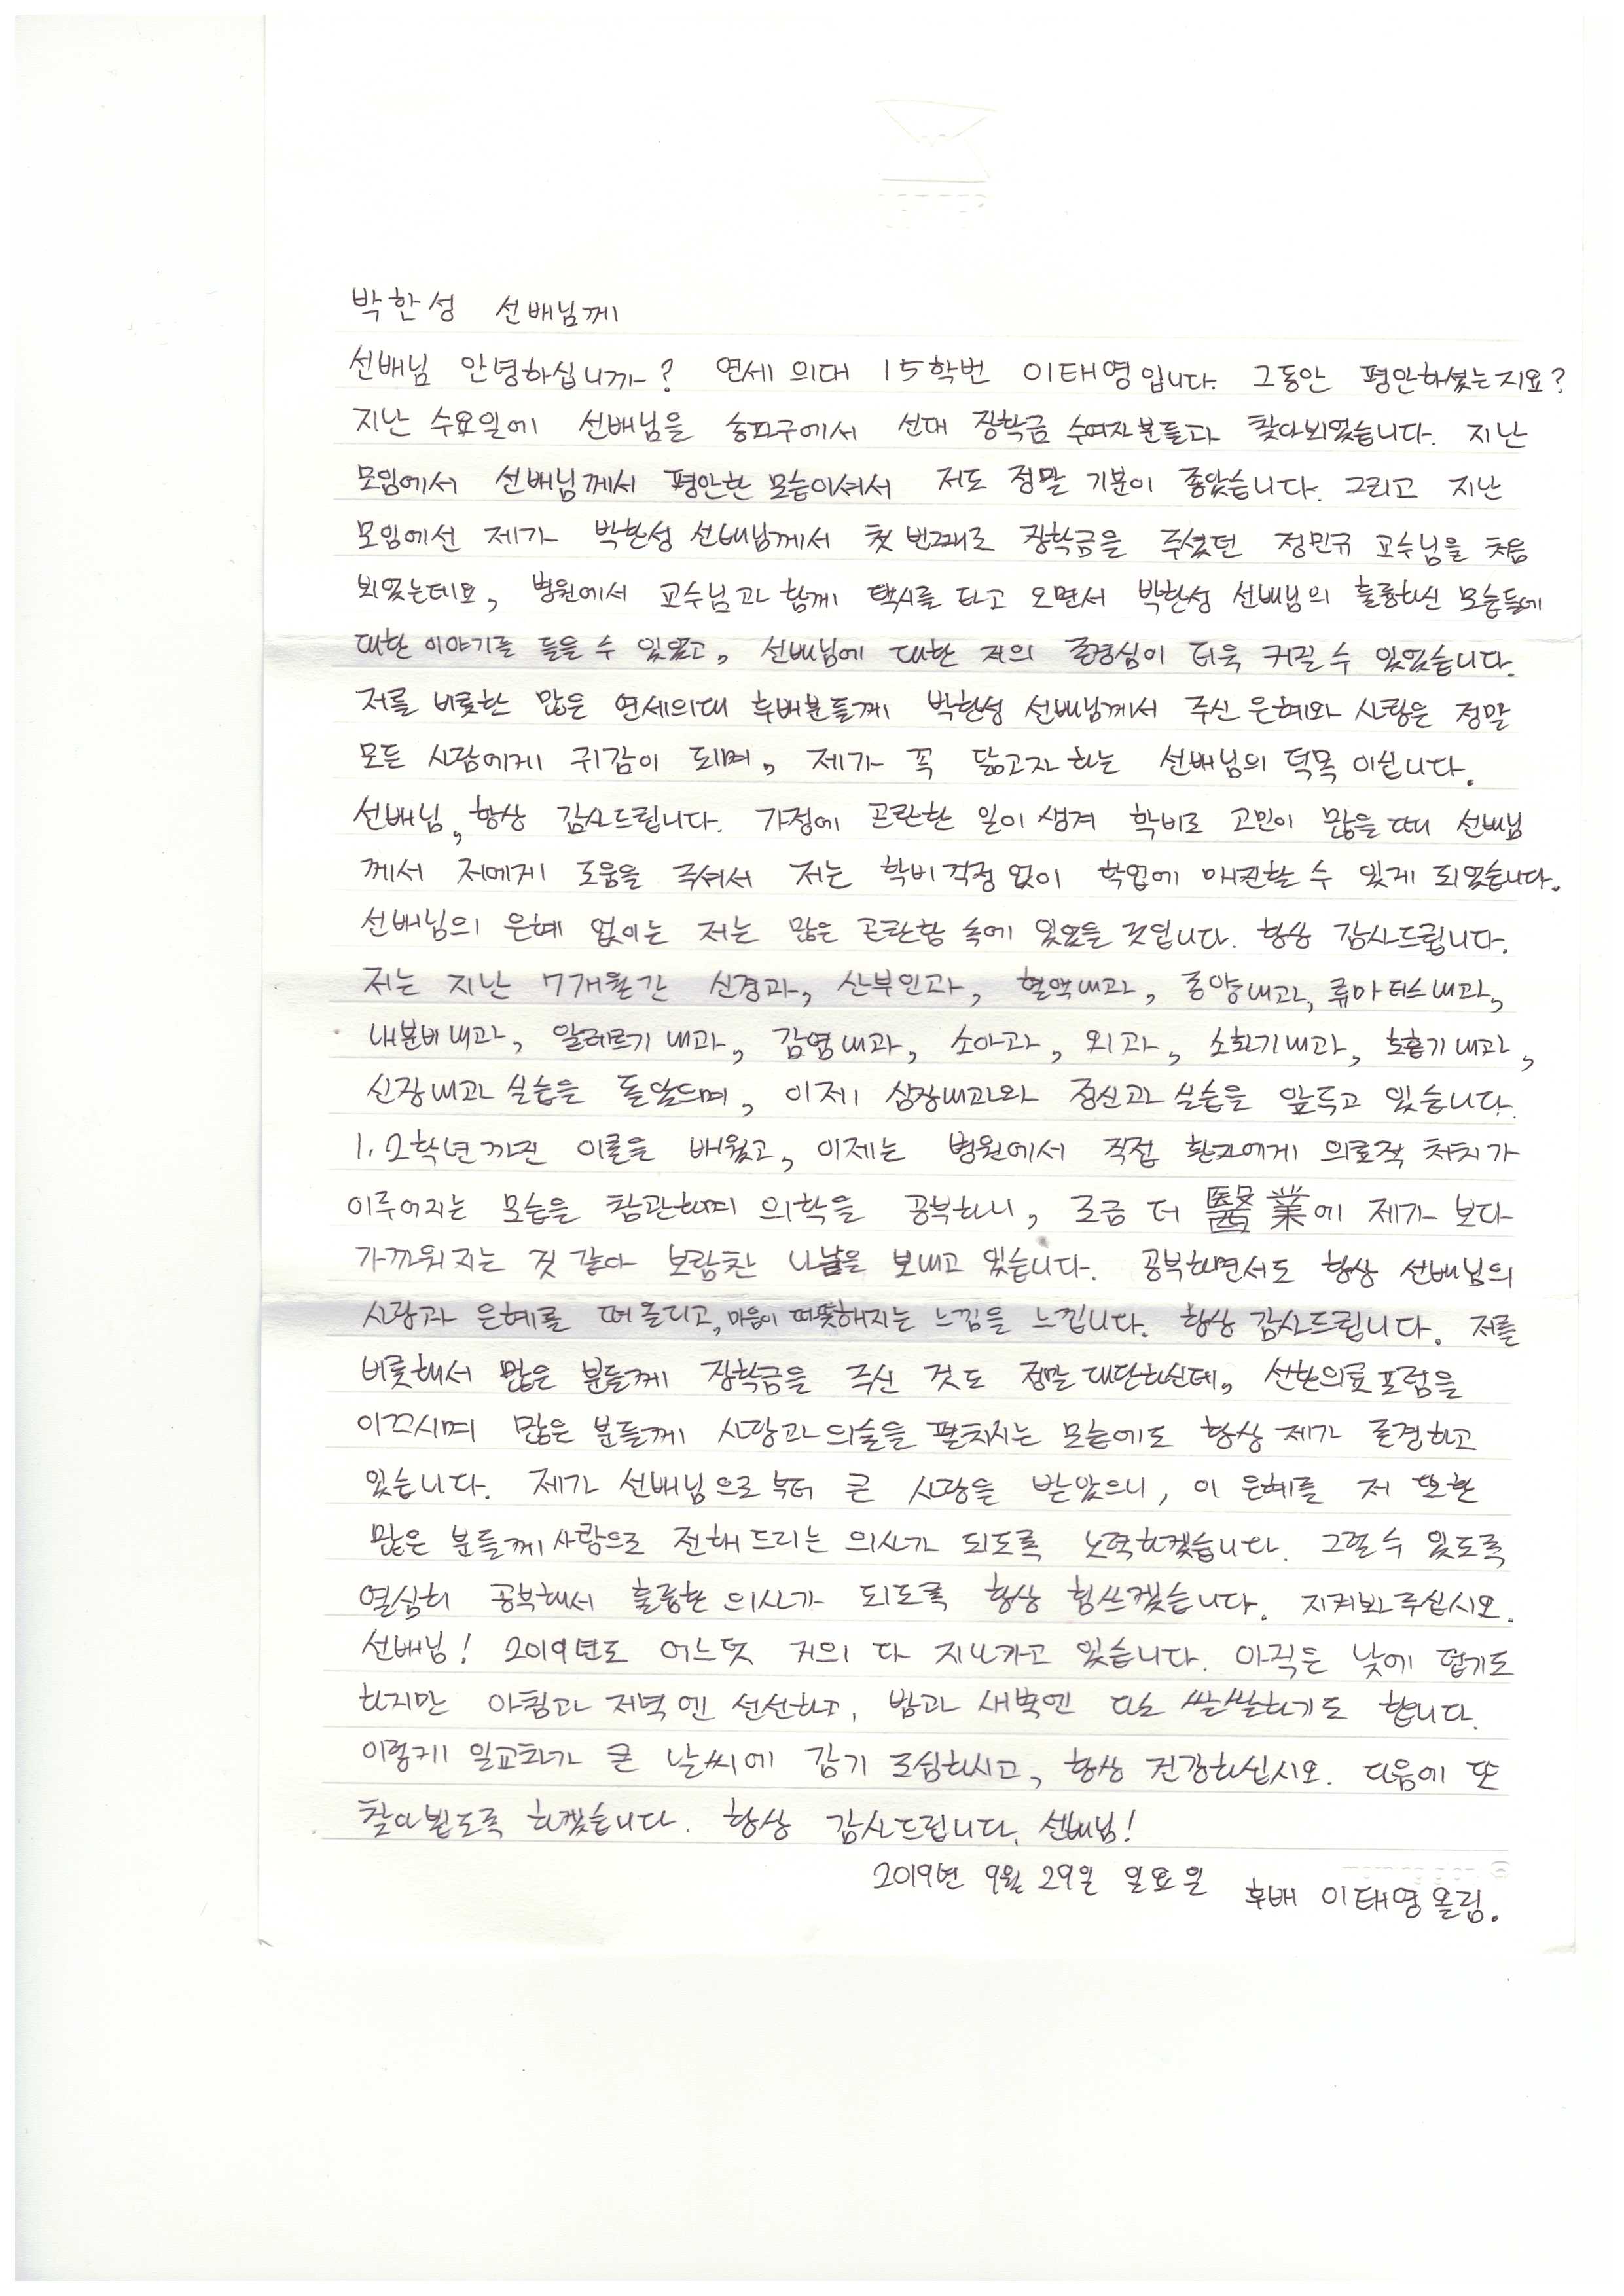 박한성 선배님께
선배님 안녕하십니까? 연세 의대 15학번 이태영입니다. 그동안 평안하셨는지요?
지난 수요일에 선배님을 송파구에서 선대 장학금 수여자분들과 찾아뵈었습니다. 지난
모임에서 선배님께서 평안한 모습이셔서 저도 정말 기분이 좋았습니다. 그리고 지난
모임에선 제가 박한성 선배님께서 첫 번째로 장학금을 주셨던 정민규 교수님을 처음
뵈었는데요, 병원에서 교수님과 함께 택시를 타고 오면서 박한성 선배님의 훌륭하신 모습들에
대한 이야기를 들을 수 있었고, 선배님에 대한 저의 존경심이 더욱 커질 수 있었습니다.
저를 비롯한 많은 연세의대 후배분들께 박한성 선배님께서 주신 은혜와 사랑은 정말
모든 사람에게 귀감이 되며, 제가 꼭 닮고자 하는 선배님의 덕목 이십니다.
선배님, 항상 감사드립니다. 가정에 곤란한 일이 생겨 학비로 고민이 많을 때 선배님
께서 저에게 도움을 주셔서 저는 학비걱정 없이 학업에 매진할 수 있게 되었습니다.
선배님의 은혜 없이는 저는 많은 곤란함 속에 있었을 것입니다. 항상 감사드립니다.
저는 지난 7개월간 신경과, 산부인과, 혈액내과, 종양내과, 류마티스내과,
내분비내과, 알레르기내과, 감염내과, 소아과, 외과, 소화기내과, 호흡기내과,
신장내과 실습을 돌았으며, 이제 심장내과와 정신과 실습을 앞두고 있습니다.
1, 2학년까진 이론을 배웠고, 이제는 병원에서 직접 환자에게 의료적 처치가
이루어지는 모습을 참관하며 의학을 공부하니, 조금 더 醫業에 제가 보다
가까워지는 것 같아 보람찬 나날을 보내고 있습니다. 공부하면서도 항상 선배님의
사랑과 은혜를 떠올리고, 마음이 따뜻해지는 느낌을 느낍니다. 항상 감사드립니다. 저를
비롯해서 많은 분들께 장학금을 주신 것도 정말 대단하신데, 선한의료포럼을
이끄시며 많은 분들께 사랑과 의술을 펼치시는 모습에도 항상 제가 존경하고
있습니다. 제가 선배님으로부터 큰 사랑을 받았으니, 이 은혜를 저 또한
많은 분들께 사랑으로 전해드리는 의사가 되도록 노력하겠습니다. 그럴 수 있도록
열심히 공부해서 훌륭한 의사가 되도록 항상 힘쓰겠습니다. 지켜봐 주십시오.
선배님! 2019년도 어느덧 거의 다 지나가고 있습니다. 아직은 낮에 덥기도
하지만 아침과 저녁엔 선선하고, 밤과 새벽엔 다소 쌀쌀하기도 합니다.
이렇게 일교차가 큰 날씨에 감기 조심하시고, 항상 건강하십시오. 다음에 또
찾아뵙도록 하겠습니다. 항상 감사드립니다, 선배님!
2019년 9월 29일 일요일 후배 이태영올림.